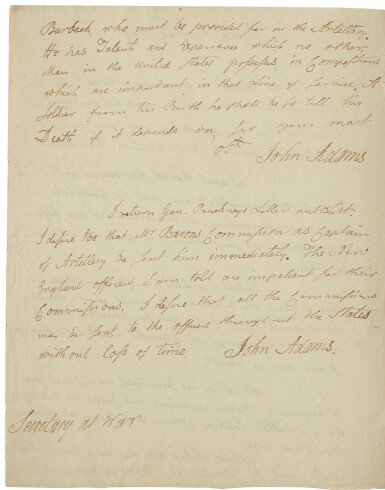 Burbeck, who must be provided for in the Artillery.
He has Talents and Experience which no other
Man in the United States possesses in Compositions
which are important in that Line of Service. A
Soldier from his Birth he shall be so till his
Death if it depends on, Sir your most
obt
John Adams
I return Gen. Pinckneys Letter and List.
I desire too that Mr Barons Commission as Captain
of Artillery be sent him immediately. The New
England officers, I am told are impatient for their
Commissions. I desire that all the Commissions
may be sent to the officers throughout the States
without Loss of time
John Adams.
Secretary at War